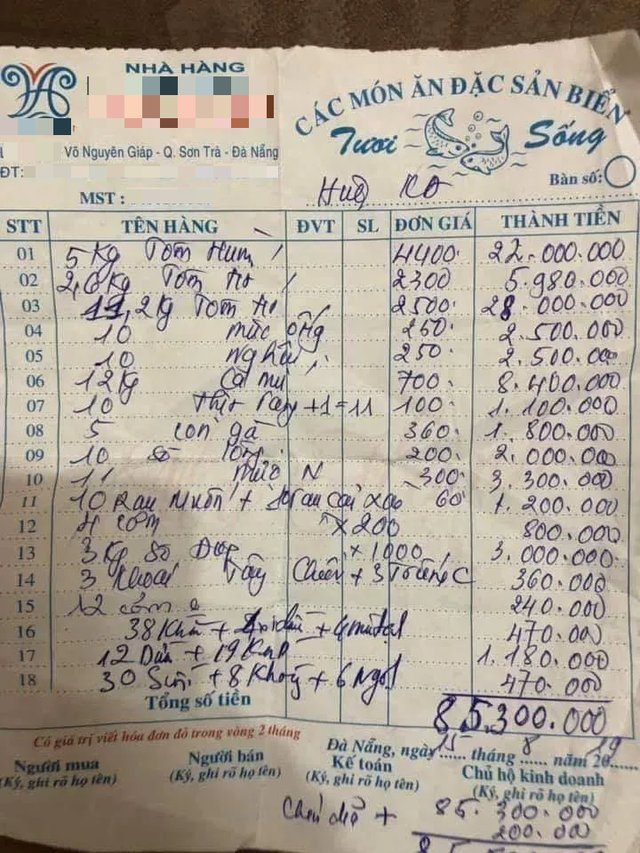 NHÀ HÀNG
CÁC MÓN ĂN ĐẶC SẢN BIỂN
Tươi Sống
Võ Nguyên Giáp - Q. Sơn Trà - Đà Nẵng
ĐT:
MST :
Bàn số:
STT TÊN HÀNG ĐVT SL ĐƠN GIÁ THÀNH TIỀN
01 5 Kg Tôm Hùm 4400 22.000.000
02 2,6 Kg Tôm 2300 5.980.000
03 11,2 Kg Tôm 2500 28.000.000
04 10 mực ống 250 2.500.000
05 10 nghêu 250 2.500.000
06 12 Kg Cá mú 700 8.400.000
07 10 Thịt +1=11 100 1.100.000
08 5 con gà 360 1.800.000
09 10 tôm 200 2.000.000
10 11 mực N 300 3.300.000
11 10 Rau Muốn + rau cải xào 60 1.200.000
12 4 cơm x 200 800.000
13 3 Kg x 1000 3.000.000
14 3 Khoai Tây Chiên + 3 Trứng C 360.000
15 12 cơm 240.000
16 38 Khăn + + 4 470.000
17 12 Dừa + 19 1.180.000
18 30 Suối + 8 + 6 Ngọt 470.000
Tổng số tiền 85.300.000
Có giá trị viết hóa đơn đỏ trong vòng 2 tháng
Đà Nẵng, ngày 15 tháng 8 năm 2019
Người mua Người bán Kế toán Chủ hộ kinh doanh
(Ký, ghi rõ họ tên) (Ký, ghi rõ họ tên) (Ký, ghi rõ họ tên) (Ký, ghi rõ họ tên)
85.300.000
+ 200.000